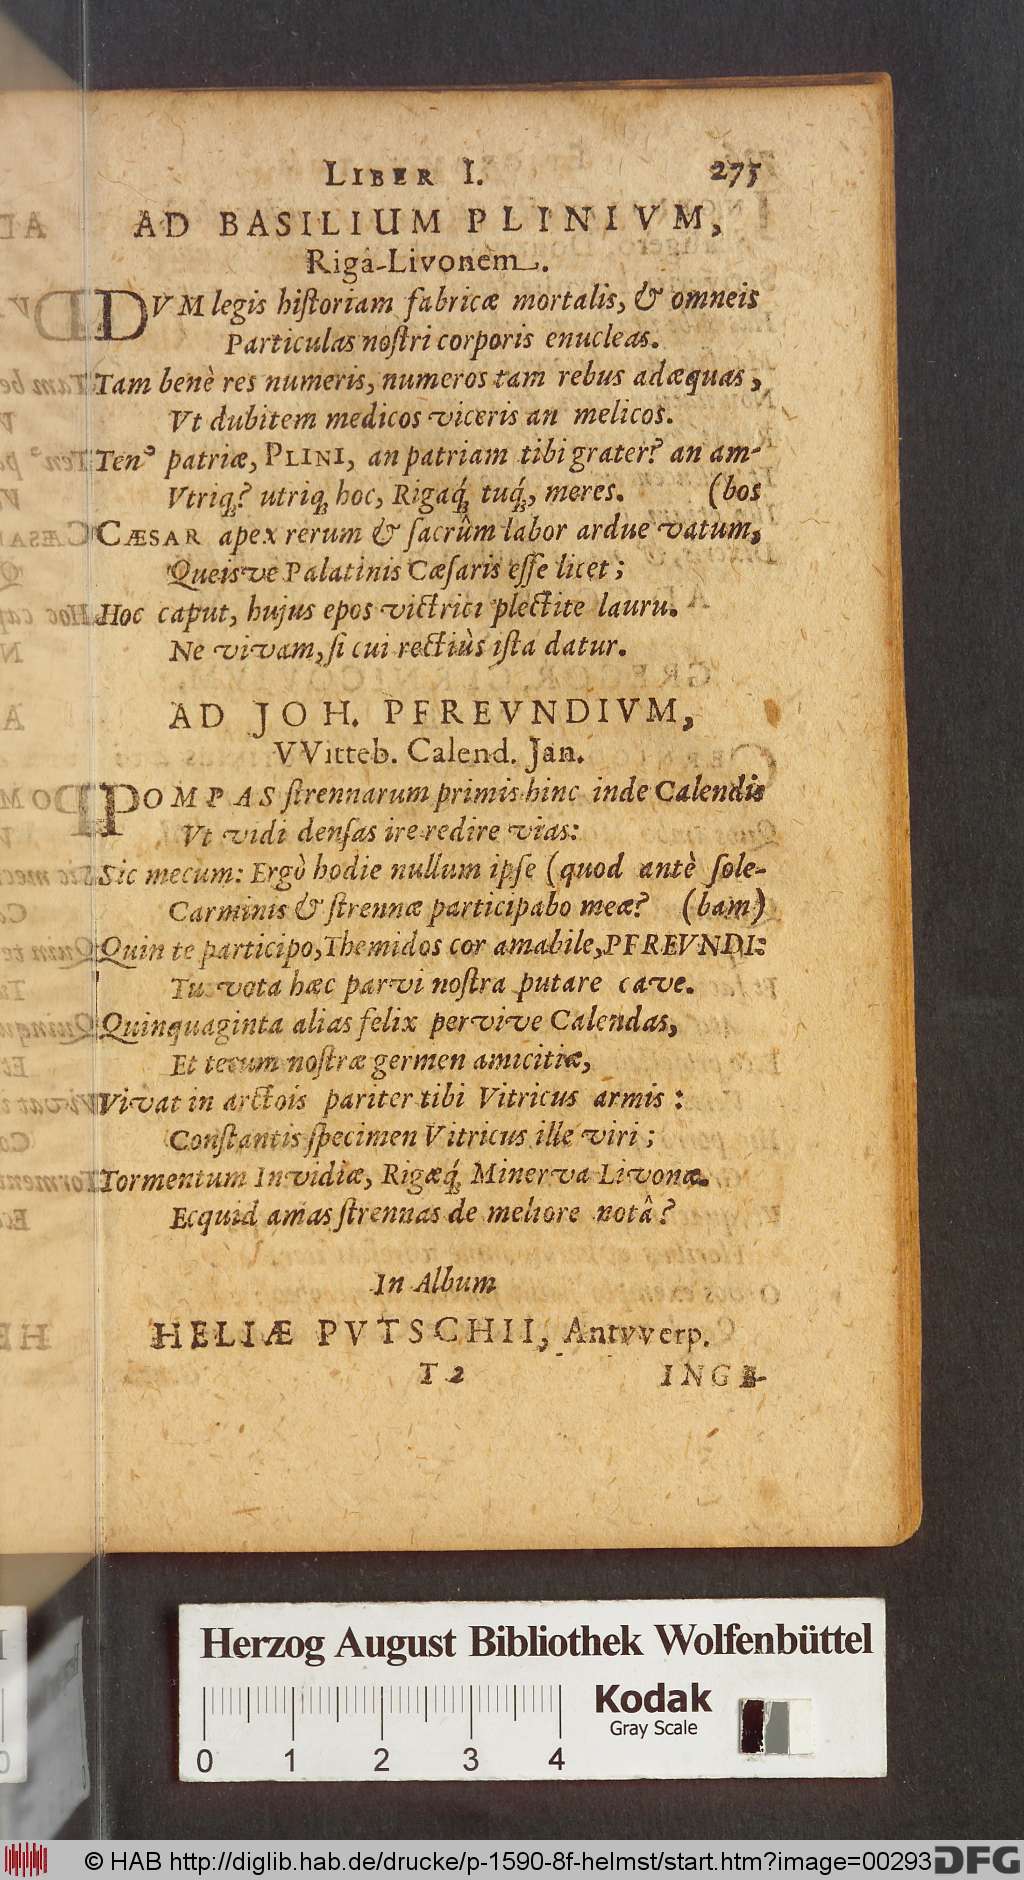 LIBER I. 275
AD BASILIUM PLINIVM,
Rigâ-Livonem.
DVM legis hiſtoriam fabricæ mortalis, & omneis
Particulas noſtri corporis enucleas.
Tam benè res numeris, numeros tam rebus adæquas,
Vt dubitem medicos viceris an melicos.
Tenꝰ patriæ, PLINI, an patriam tibi grater? an am-
Vtriq̃? utriq̃ hoc, Rigaq́ tuq́, meres. (bos
CÆSAR apex rerum & ſacrûm labor ardue vatum,
Queisve Palatinis Cæſaris eſſe licet;
Hoc caput, hujus epos victrici plectite lauru.
Ne vivam, ſi cui rectiùs iſta datur.
AD JOH. PFREVNDIVM,
VVitteb. Calend. Jan.
POMPAS ſtrennarum primis hinc inde Calendis
Vt vidi denſas ire redire vias:
Sic mecum: Ergò hodie nullum ipſe (quod antè ſole-
Carminis & ſtrennæ participabo meæ? (bam)
Quin te participo, Themidos cor amabile, PFREVNDI:
Tu vota hæc parvi noſtra putare cave.
Quinquaginta alias felix pervive Calendas,
Et tecum noſtræ germen amicitiæ,
Vivat in arctois pariter tibi Vitricus armis:
Conſtantis ſpecimen Vitricus ille viri;
Tormentum Invidiæ, Rigæq́ Minerva Livonæ.
Ecquid amas ſtrennas de meliore notâ?
In Album
HELIÆ PVTSCHII, Antvverp.
T 2 INGE-
Herzog August Bibliothek Wolfenbüttel
Kodak
Gray Scale
0 1 2 3 4
© HAB http://diglib.hab.de/drucke/p-1590-8f-helmst/start.htm?image=00293
DFG